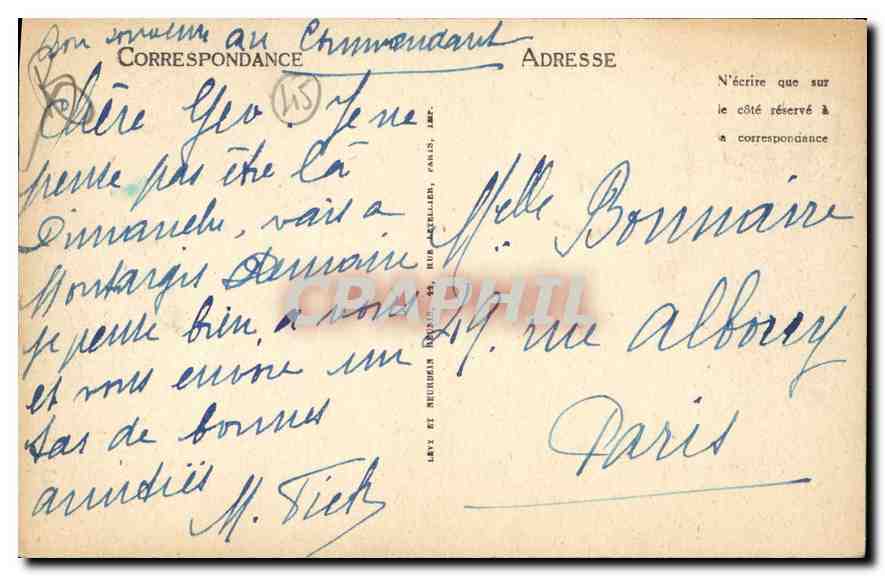 Bon souvenir au Commandant
CORRESPONDANCE
ADRESSE
N'écrire que sur
le côté réservé à
la correspondance
115
Chère Geo. Je ne
pense pas être là
Dimanche, vais a
Montargis Demain
je pense bien a vous
et vous envoie un
tas de bonnes
amitiés
M.
LÉVY ET NEURDEIN RÉUNIS, 44, RUE LETELLIER, PARIS, IMP.
Melle Bonnaire
29. rue Albouy
Paris
CRAPHIL